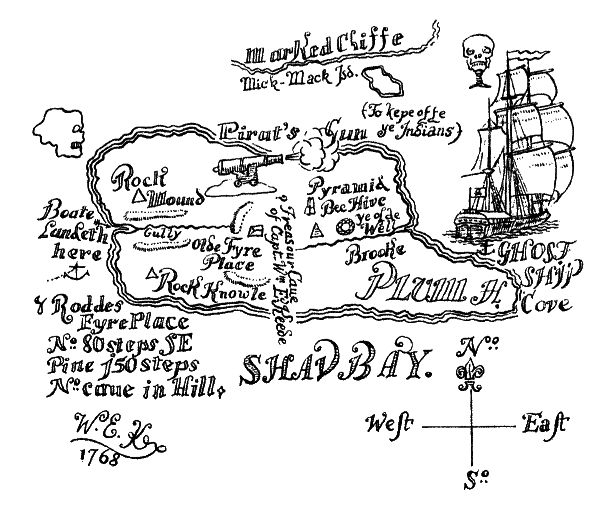 Marked Cliffe
Mick-Mack Isd.
(To kepe offe
ye Indians)
Pirat's Gun
Rock
Mound
Pyramid
Bee Hive
ye olde
Well
Treasour Cave
of Capt. Wm
Boate
Landeth
here
Gully
Olde Fyre
Place
Brooke
Rock Knowle
PLUM
GHOST
SHIP
Cove
Roddes
FyrePlace
No. 80 steps SE
Pine 150 steps
No. cave in Hill,
SHAD BAY.
W. E. K.
1768
No.
West
East
So.